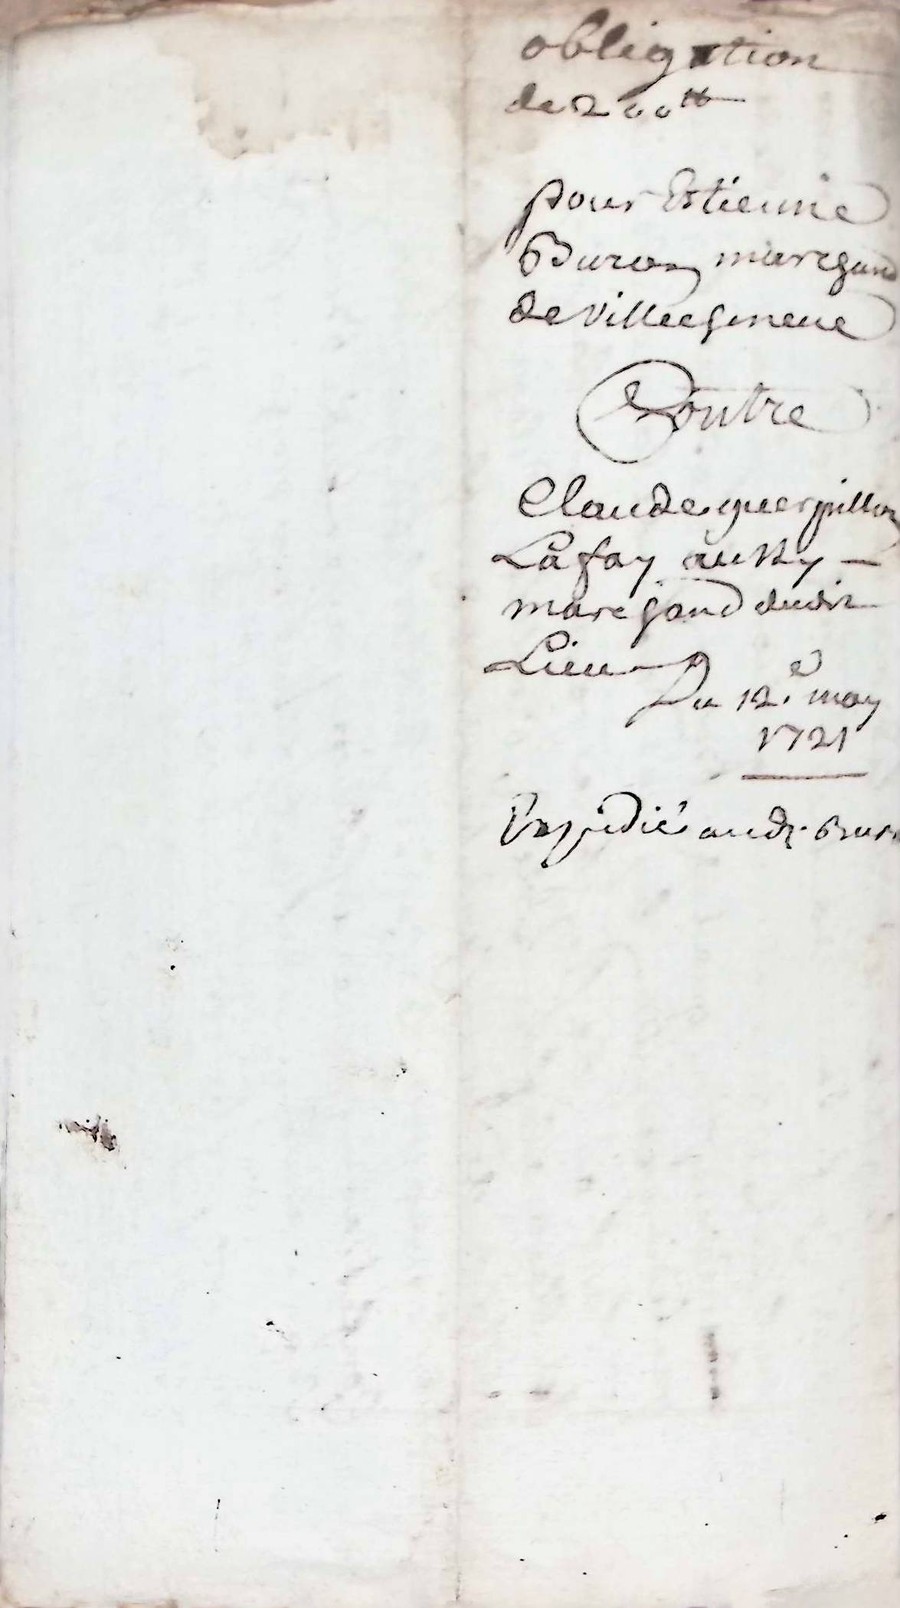 obligation
de 200 tt
pour Estienne
Buron marchand
de Villecheneve
Contre
Claude guerpillon
Lafay aussy
marchand dudit
Lieu
Du 12e may
1721
Expédié audt. Buron